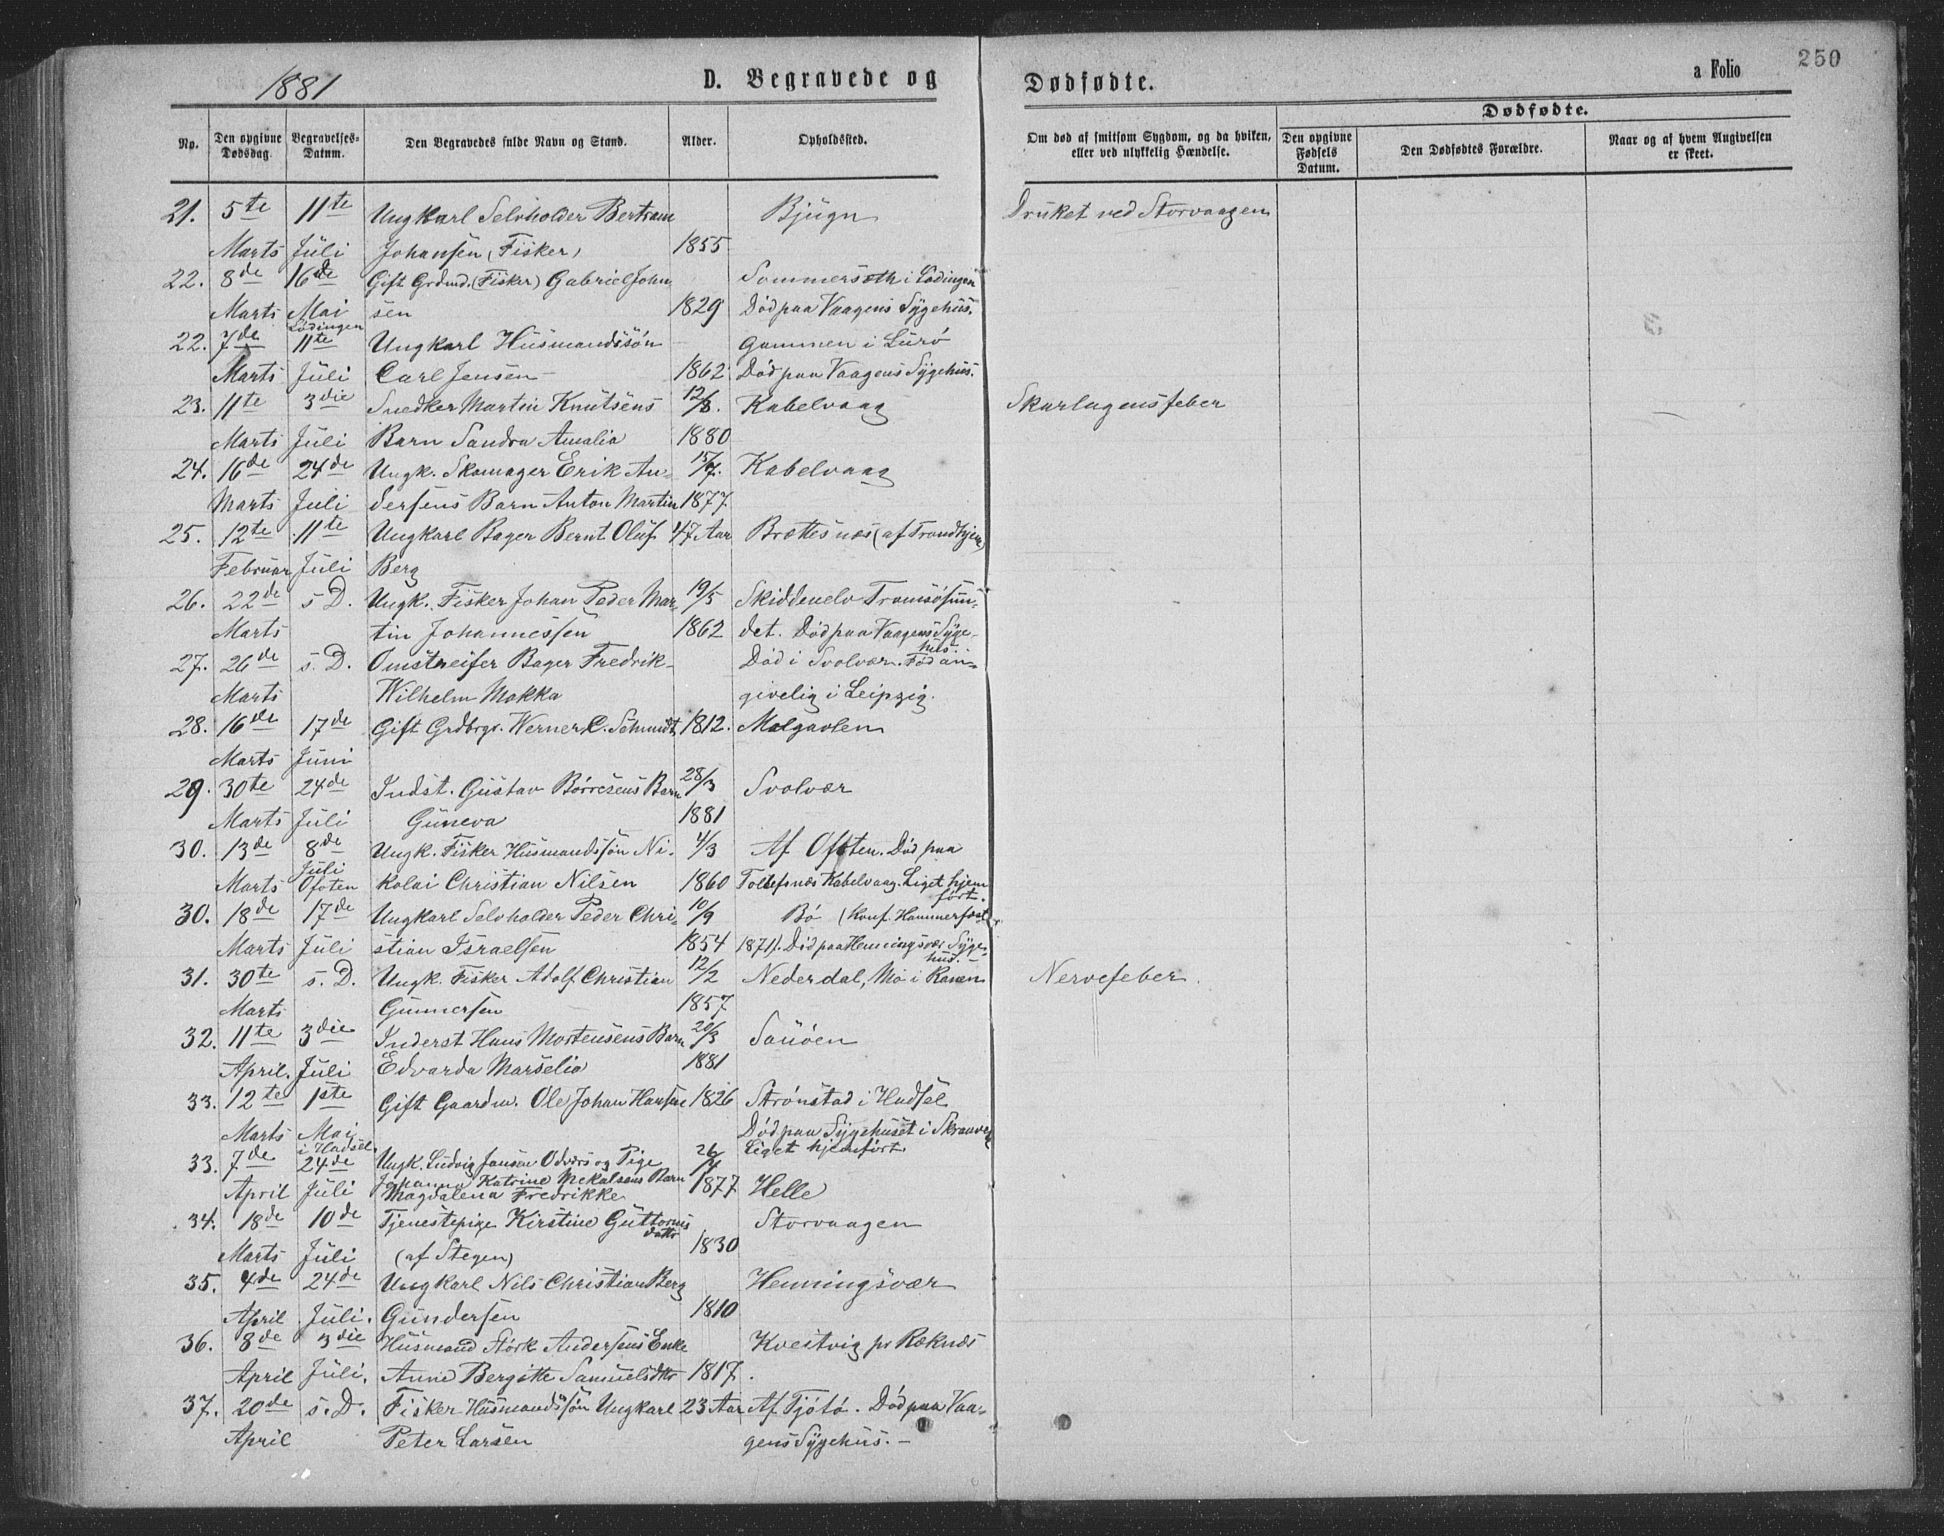 1881
D. Begravede og Dødfødte.
a Folio
250
No. Den opgivne Dødsdag. Begravelses-Datum. Den Begravedes fulde Navn og Stand. Alder. Opholdssted. Om død af smitsom Sygdom, og da hvilken, eller ved ulykkelig Hændelse. Dødfødte. Den opgivne Fødsels Datum. Den Dødfødtes Forældre. Naar og af hvem Angivelsen er skeet.
21. 5te 11te Ungkarl Selvholder Bertram Bjugn Druket ved Storvaagen
Marts Juli Johansen (Fisker) 1855
22. 8de 16de Gift Grdmd. (Fisker) Gabriel John Sommersæth i Lødingen
Marts Mai sen 1829 Død paa Vaagens Sygehus.
Lødingen
22. 7de 11te Ungkarl Husmandssøn Gammen i Lurø
Marts Juli Carl Jensen 1862 Død paa Vaagens Sygehus.
23. 11te 3die Snedker Martin Knutsens 12/8. Kabelvaag Skarlagensfeber
Marts Juli Barn Sandra Amalia 1880
24. 16de 24de Ungk. Skomager Erik An- 15/7. Kabelvaag
Marts Juli dersens Barn Anton Martin 1877.
25. 12te 11te Ungkarl Bager Bernt Oluf 47 Aar Brettesnæs (af Trondhjem)
Februar Juli Berg
26. 22de s. D. Ungk. Fisker Johan Peder Mar- 19/5 Skiddenelv Tromsøsun-
Marts tin Johannessen 1862 det. Død paa Vaagens Syge-
hus.
27. 26de s. D. Omstreifer Bager Fredrik Død i Svolvær. Fød an-
Marts Wilhelm Mokka givelig i Leipzig.
28. 16de 17de Gift Grdbrgr. Werner C. Schmidt 1812. Molgavlen
Marts Juni
29. 30te 24de Indst. Gustav Børresens Barn 28/3 Svolvær
Marts Juli Guneva 1881
30. 13de 8de Ungk. Fisker Husmandssøn Ni- 4/3 Af Ofoten. Død paa
Juli
Marts Ofoten kolai Christian Nilsen 1860 Tollefsnæs Kabelvaag. Liget hjem
ført.
30. 18de 17de Ungkarl Selvholder Peder Chri- 10/9 Bø (Konf. Hammerfest
Marts Juli stian Israelsen 1854 1871). Død paa Henningsvær Syge-
hus.
31. 30te s. D. Ungk. Fisker Adolf Christian 12/2 Nederdal, Mo i Ranen Nervefeber.
Marts Gunnersen 1857
32. 11te 3die Inderst Hans Mortensens Barn 20/3 Sauøen
April. Juli Edvarda Marselia 1881
33. 12te 1ste Gift Gaardm. Ole Johan Hansen 1826 Strønstad i Hadsel
Marts Mai Død paa Sygehuset i Skraaven
i Hadsel Liget hjemført
33. 7de 24de Ungk. Ludvig Jansen Odvers og Pige 26/4
April Juli Johanna Katrine Mekalsens Barn 1877 Helle
Magdalena Fredrikke
34. 18de 10de Tjenestepige Kirstine Guttorms Storvaagen
datter
Marts Juli (af Stegen) 1830
35. 4de 24de Ungkarl Nils Christian Berg Henningsvær
April Juli. Gundersen 1810
36. 8de 3die Husmand Størk Andersens Enke Kvestvig pr Reknæs
April Juli, Anne Bergitte Samuelsdtr 1817.
37. 20de s. D. Fisker Husmandssøn Ungkarl 23 Aar Af Tjøtø. Død paa Vaa-
April Peter Larsen gens Sygehus.